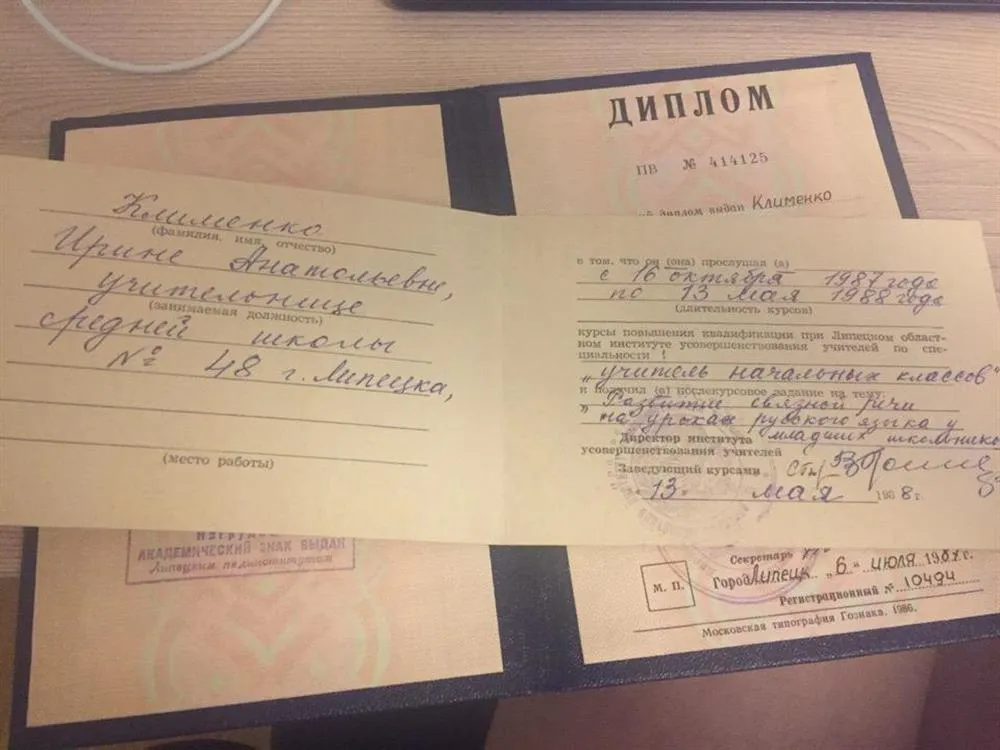 ДИПЛОМ
ПВ № 414125
диплом выдан Клименко
Клименко
(фамилия, имя, отчество)
Ирине Анатольевне,
учительнице
(занимаемая должность)
средней школы
№ 48 г. Липецка,
(место работы)
в том, что он (она) прослушал (а)
с 16 октября 1987 года
по 13 мая 1988 года
(длительность курсов)
курсы повышения квалификации при Липецком област-
ном институте усовершенствования учителей по спе-
циальности
"учитель начальных классов"
и получил (а) послекурсовое задание на тему:
"Развитие связной речи
на уроках русского языка у
младших школьнико
Директор института
усовершенствования учителей
Заведующий курсами
13 мая 1988 г.
АКАДЕМИЧЕСКИЙ ЗНАК ВЫДАН
Липецким пединститутом
Секретарь
М. П.
Город Липецк "6" июля 1987 г.
Регистрационный № 10494
Московская типография Гознака. 1986.